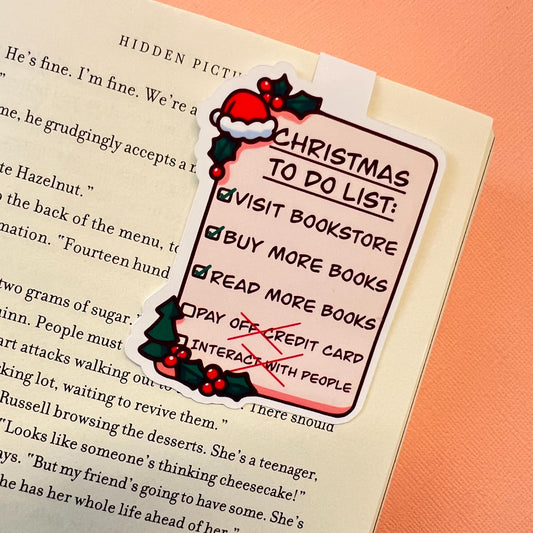 HIDDEN PICTU
He's fine. I'm fine. We're a
me, he grudgingly accepts a
te Hazelnut."
the back of the menu, to
mation. "Fourteen hund
two grams of sugar."
inn. People must
art attacks walking out
king lot, waiting to revive them." There should
Russell browsing the desserts. She's a teenager,
"Looks like someone's thinking cheesecake!"
ays. "But my friend's going to have some. She's
he has her whole life ahead of her."
CHRISTMAS
TO DO LIST:
VISIT BOOKSTORE
BUY MORE BOOKS
READ MORE BOOKS
PAY OFF CREDIT CARD
INTERACT WITH PEOPLE